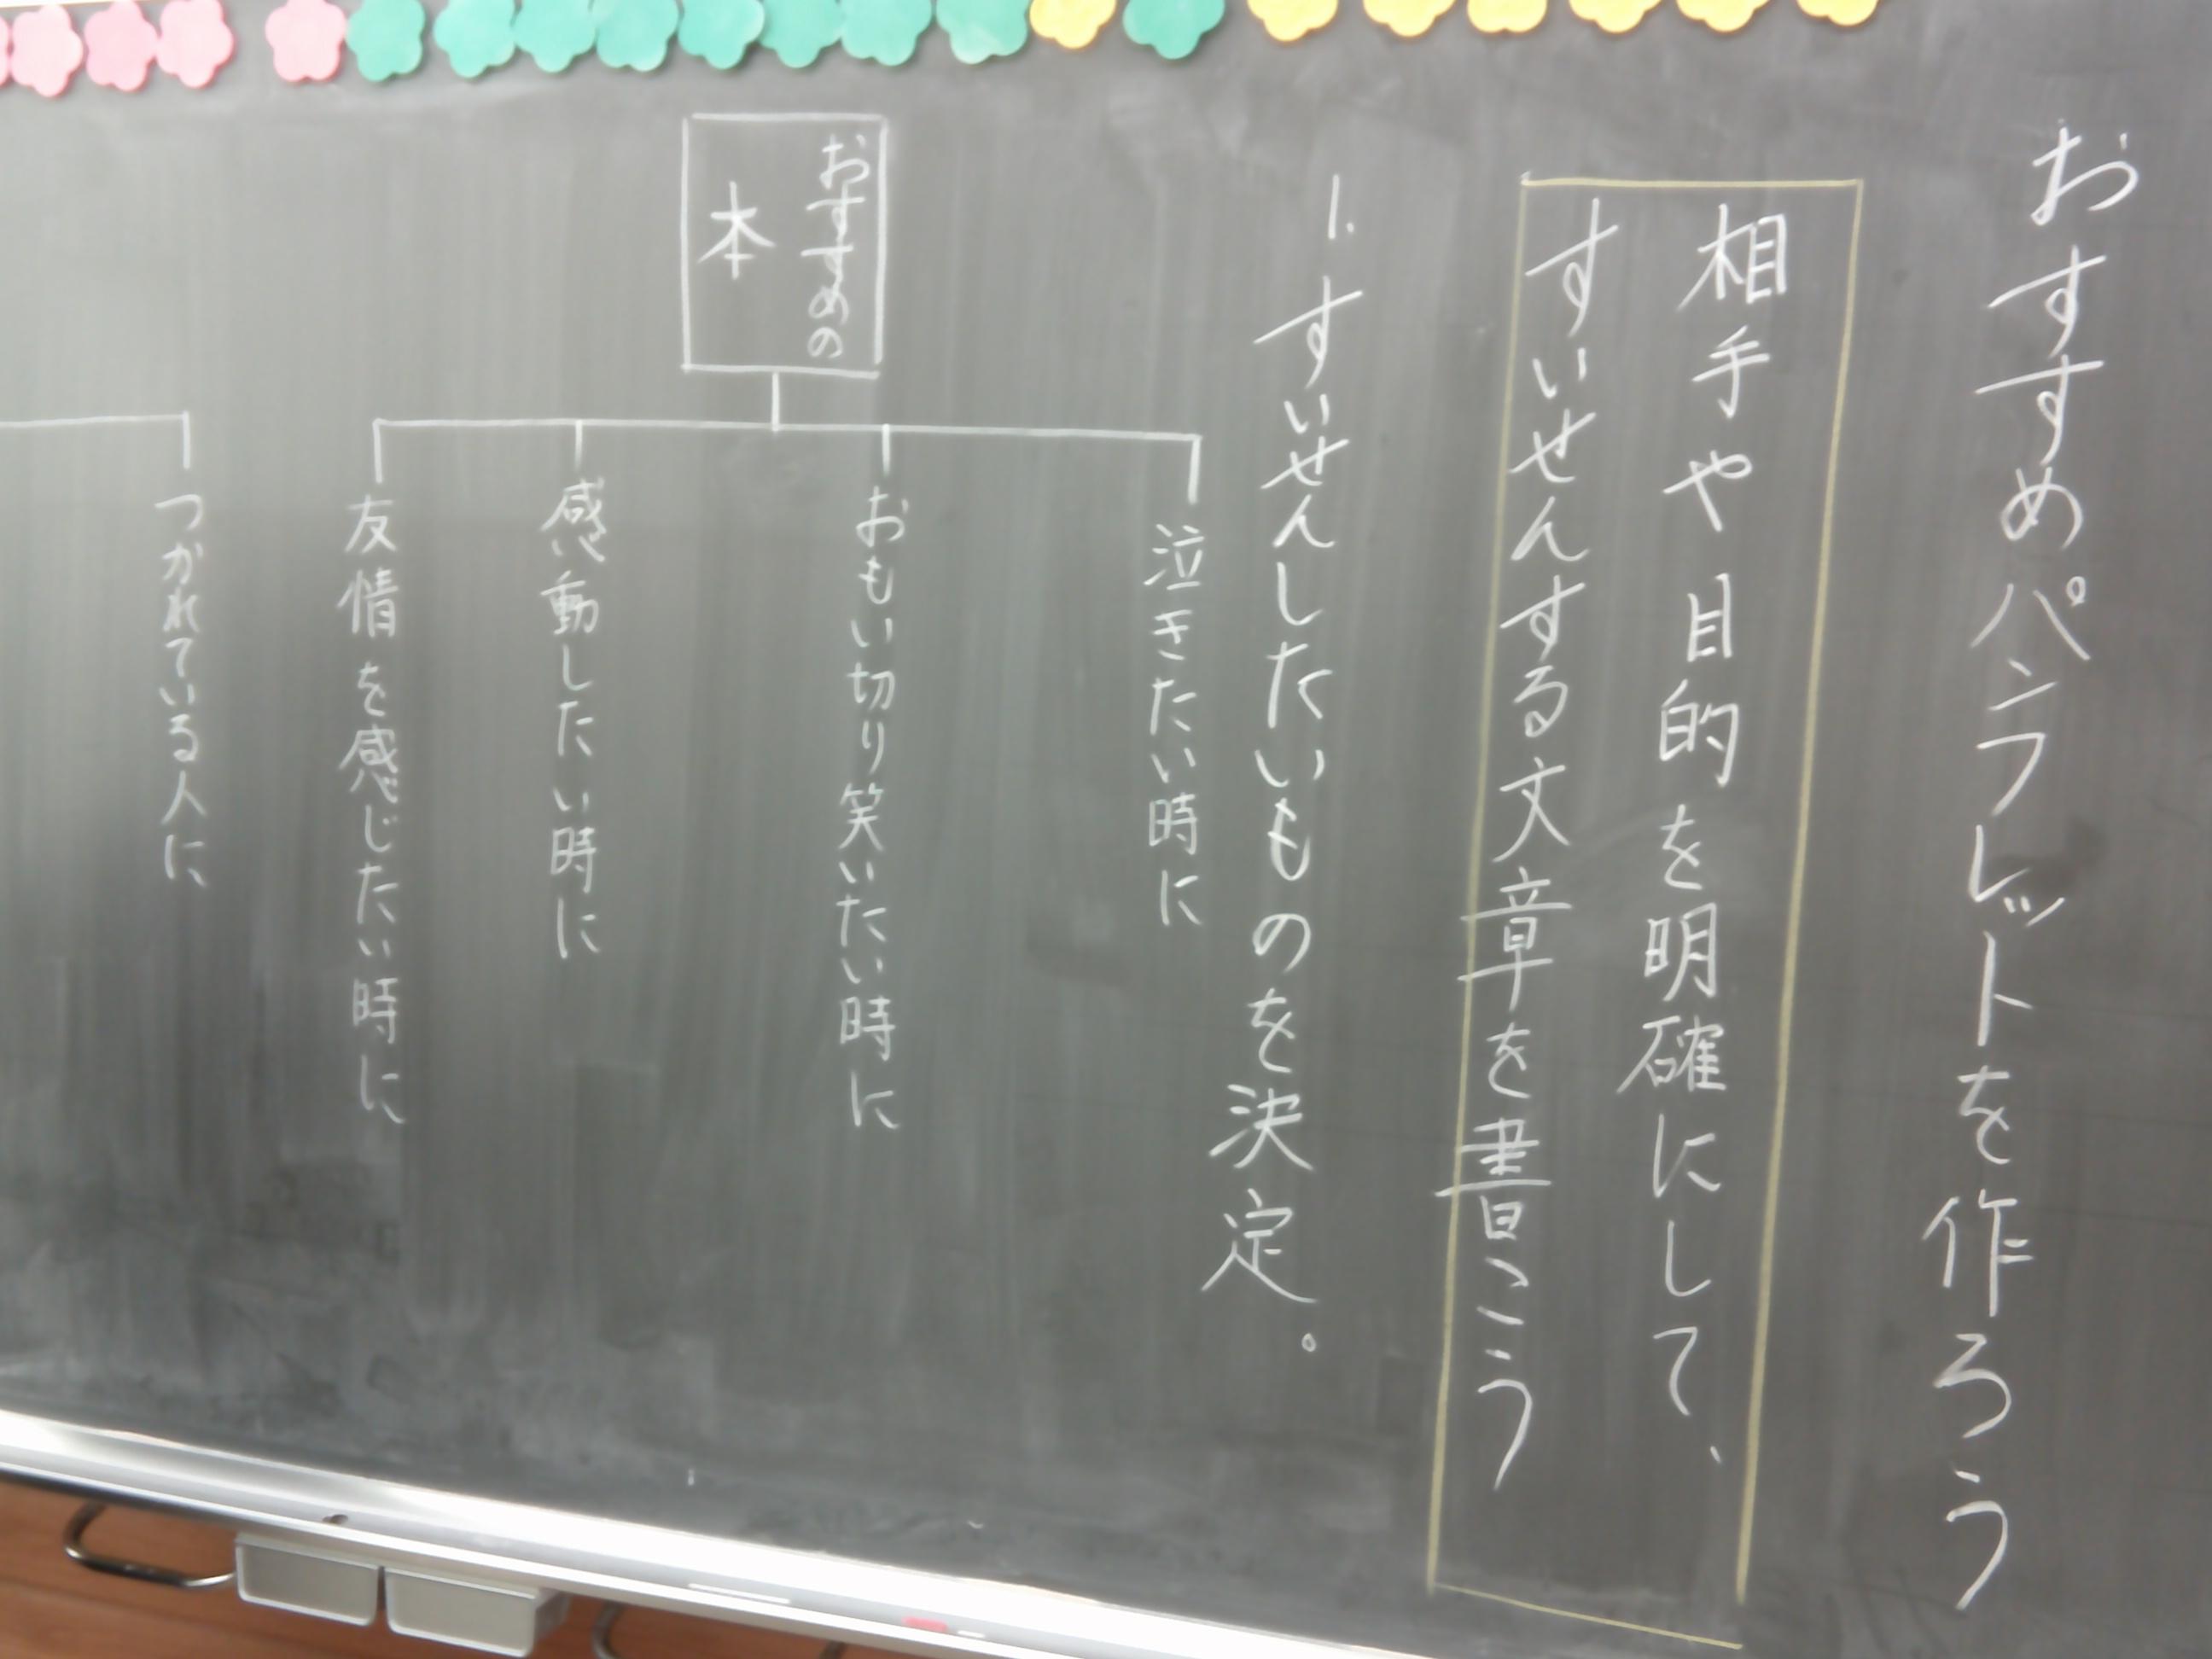 おすすめパンフレットを作ろう
相手や目的を明確にして、
すいせんする文章を書こう
1. すいせんしたいものを決定。
おすすめの
本
泣きたい時に
おもい切り笑いたい時に
感動したい時に
友情を感じたい時に
つかれている人に